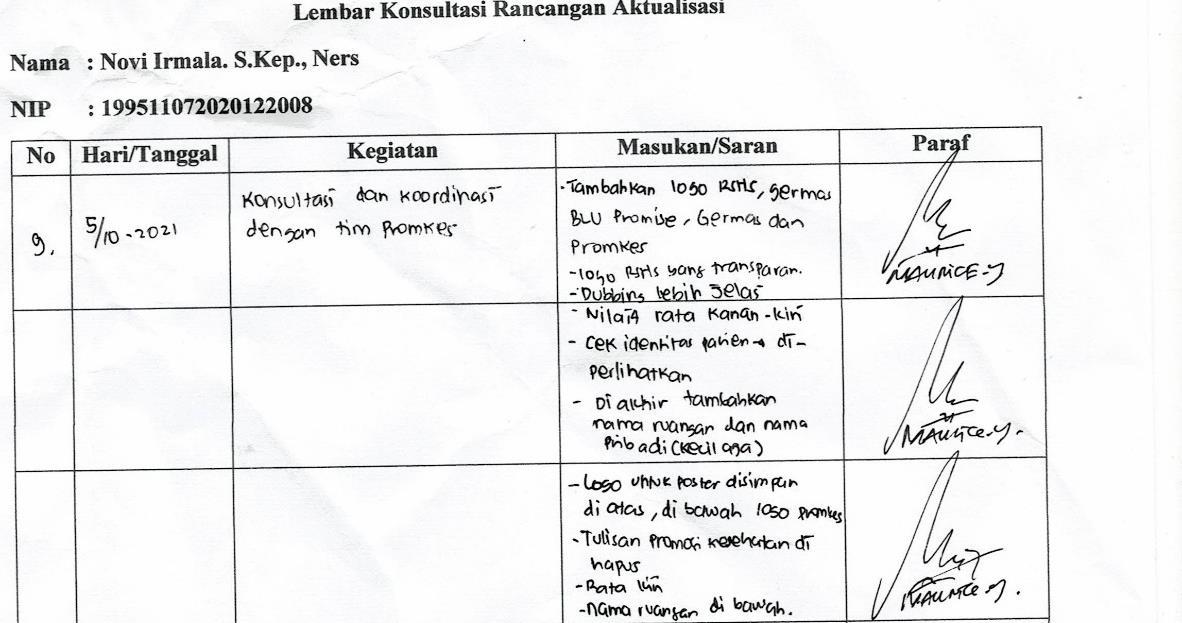 Lembar Konsultasi Rancangan Aktualisasi
Nama : Novi Irmala. S.Kep., Ners
NIP : 199511072020122008
No Hari/Tanggal Kegiatan Masukan/Saran Paraf
9. 5/10-2021
Konsultasi dan koordinasi
dengan tim Promkes
-Tambahkan logo RSHS, germas
BLU Promise, Germas dan
Promkes
-logo RSHS yang transparan.
-Dubbing lebih jelas
MAURICE-Y
- Nilai4 rata kanan-kiri
- Cek identitas pasien → di-
perlihatkan
- Di akhir tambahkan
nama ruangan dan nama
pribadi (kecil aja)
MAURICE-Y.
- Logo untuk poster disimpan
di atas, di bawah logo promkes
-Tulisan promosi kesehatan di
hapus
-Rata kiri
-nama ruangan di bawah.
MAURICE-Y.